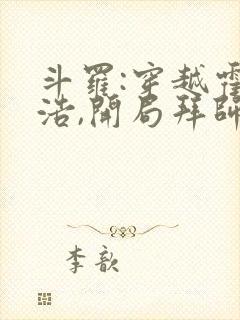 斗羅:穿越霍
浩,開局拜師
李歆